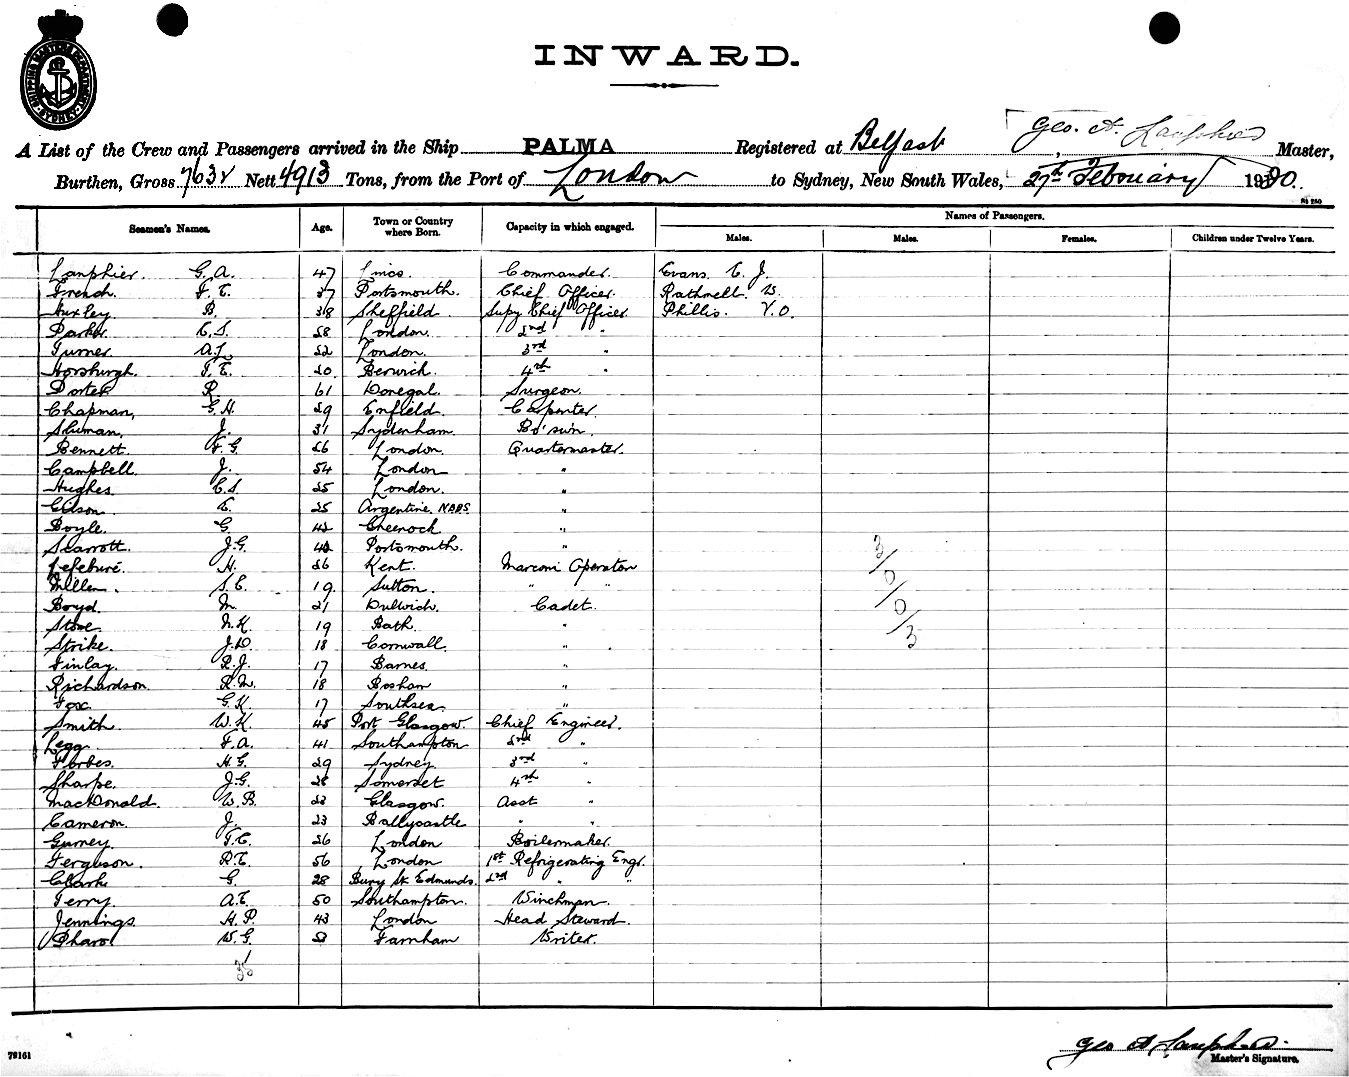 SHIPPING MASTERS DEPARTMENT SYDNEY
INWARD.
Geo. A. Lanphier
A List of the Crew and Passengers arrived in the Ship PALMA Registered at Belfast, Master,
Burthen, Gross 7632 Nett 4913 Tons, from the Port of London to Sydney, New South Wales, 27th February 1920.
Seamen's Names. Age. Town or Country where Born. Capacity in which engaged. Names of Passengers.
Males. Males. Females. Children under Twelve Years.
Lanphier. G. A. 47 Lincs. Commander. Evans. E. J.
French. F. E. 37 Portsmouth. Chief Officer. Rathmell. W.
Huxley. B. 38 Sheffield. Supy Chief Officer. Phillis. V. O.
Parker. C. S. 28 London. 2nd "
Turner. A. L. 22 London. 3rd "
Horsburgh. T. E. 20. Berwick. 4th "
Porter R 61 Donegal. Surgeon.
Chapman, G. H. 29 Enfield. Carpenter.
Sluman. J. 31 Sydenham. Bo'sun.
Bennett. F. G. 26 London. Quartermaster.
Campbell. J. 54 London "
Hughes. C. S. 25 London. "
Edson. E. 25 Argentine. NABS. "
Boyle. G. 42 Greenock "
Scarrott. J. G. Portsmouth. "
Lefebure. H. 26 Kent. Marconi Operator
Millen. S. E. 19. Sutton. " "
Boyd. M. 21 Dulwich. Cadet.
Stone. N. K. 19 Bath. "
Strike. J. D. 18 Cornwall. "
Finlay. R. J. 17 Barnes. "
Richardson. R. M. 18 Bosham "
Fox. G. K. 17 Southsea. "
Smith. W. K. 45 Port Glasgow. Chief Engineer.
Legg. F. A. 41 Southampton 2nd "
Forbes. H. G. 29 Sydney. 3rd "
Sharpe. J. G. 28 Somerset 4th "
MacDonald. W. B. 23 Glasgow. Asst "
Cameron. J. 23 Ballycastle " "
Gurney. T. C. 26 London Boilermaker.
Ferguson. R. E. 56 London 1st Refrigerating Engr.
Clark G. 28 Bury St. Edmunds. 2nd " "
Terry. A. E. 50 Southampton. Winchman.
Jennings. H. P. 43 London Head Steward.
Pharo W. G. Farnham Writer.
35
3/0/0/3
Geo A Lanphier
79161 Master's Signature.